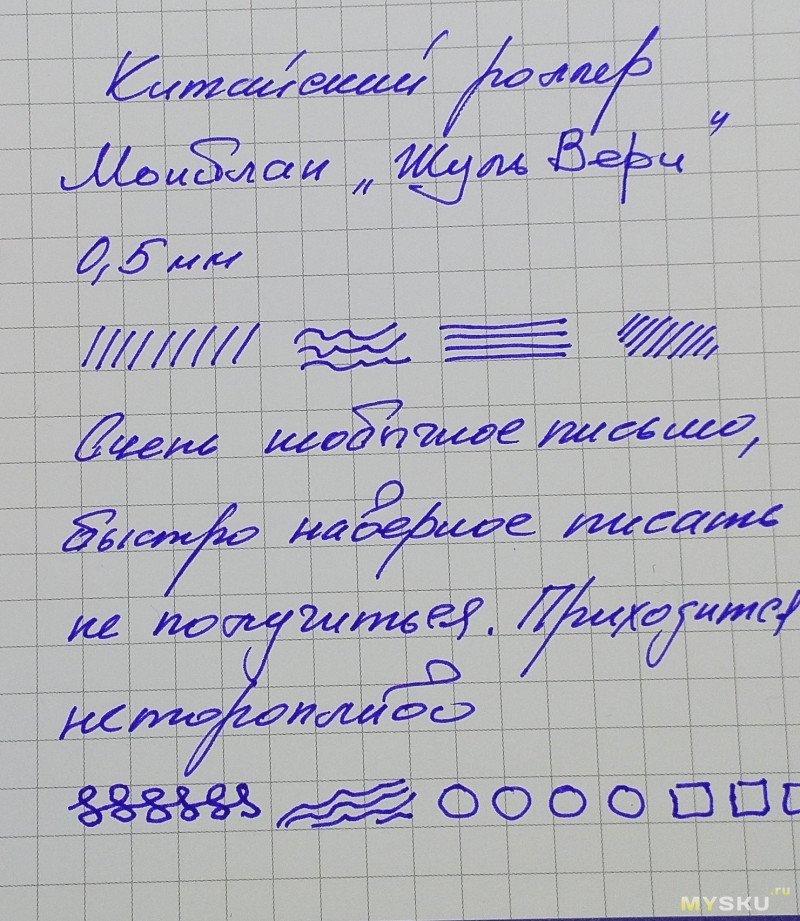 Китайский роллер
Монблан „Жуль Верн"
0,5 мм
Очень необычное письмо,
быстро наверное писать
не получиться. Приходится
неторопливо
MYSKU.ru